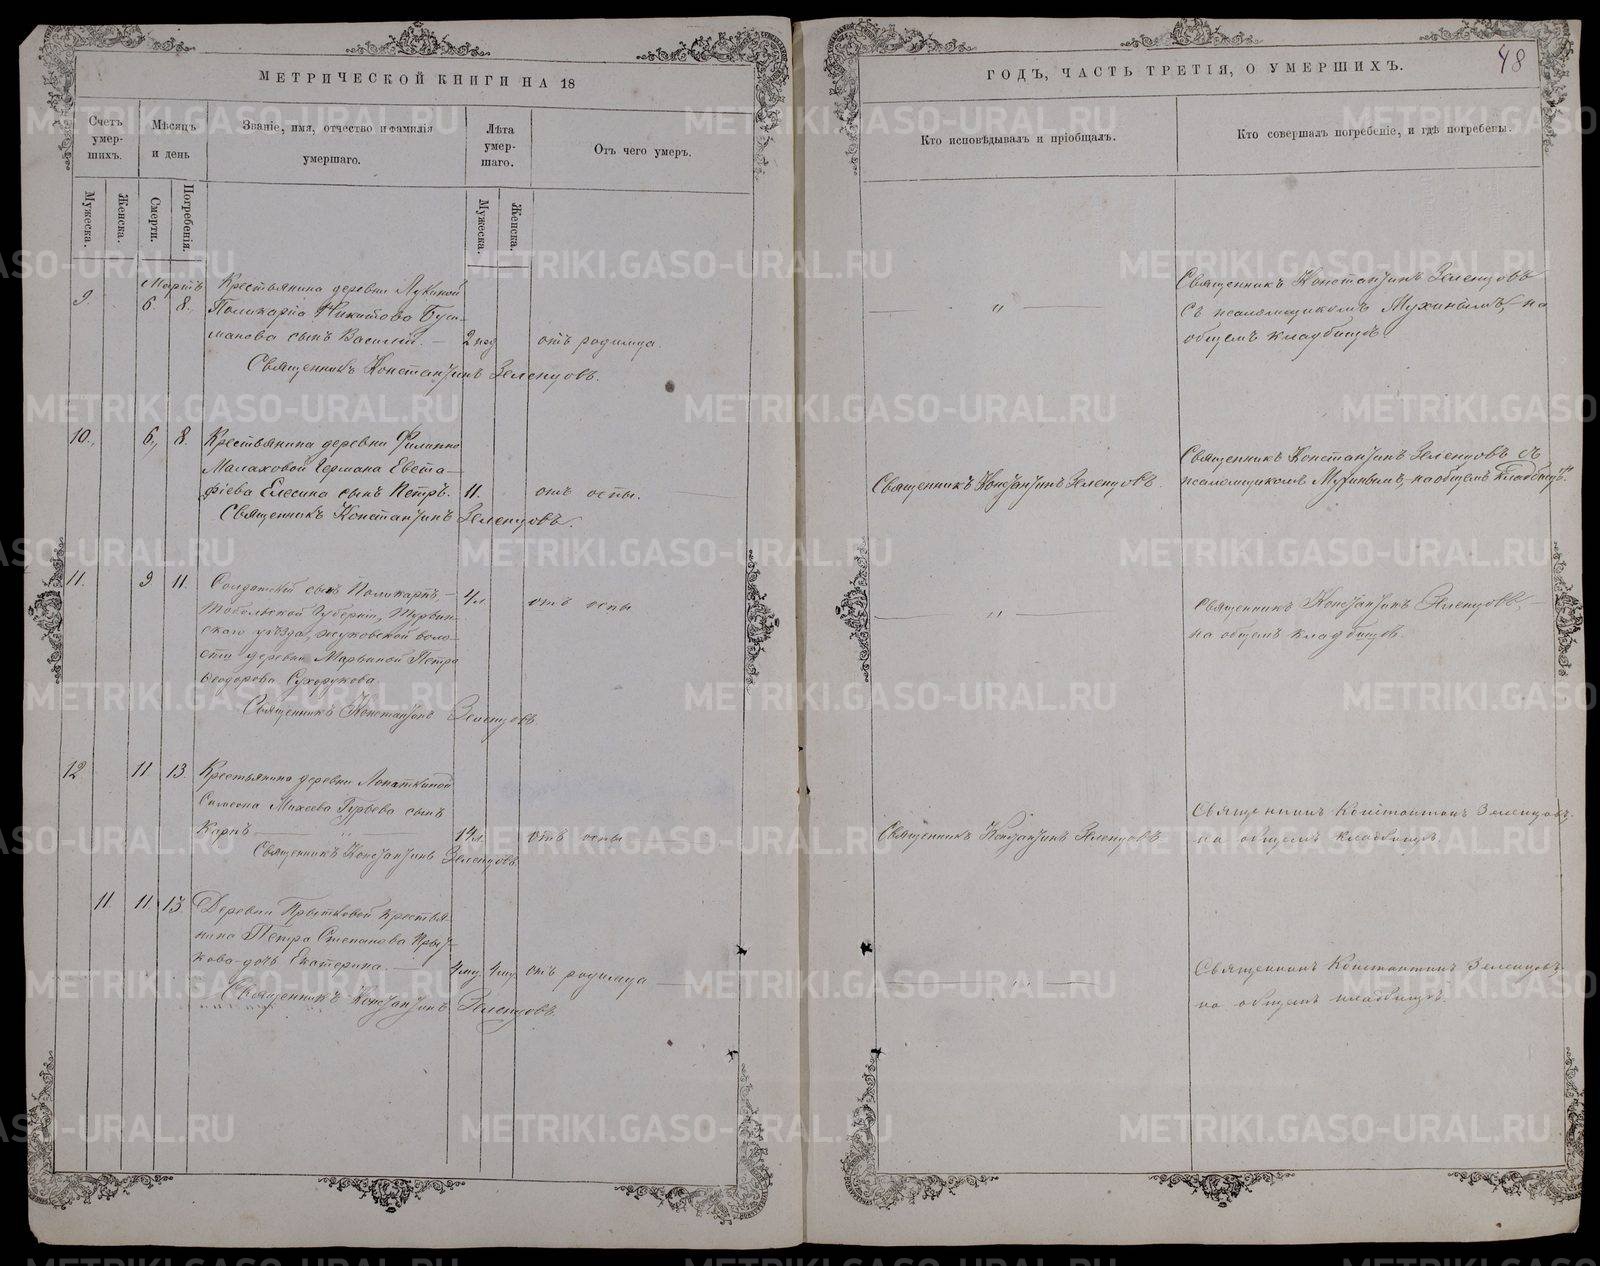 МЕТРИЧЕСКОЙ КНИГИ НА 18
Счетъ умер-шихъ.
Мѣсяцъ и день
Званіе, имя, отчество и фамилія умершаго.
Лѣта умер-шаго.
Отъ чего умеръ.
Мужеска.
Женска.
Смерти.
Погребенія.
Мужеска.
Женска.
Мартъ
9. 6. 8.
Крестьянина деревни Лукиной
Поликарпа Никитова
сынъ Василій. — 2 нед отъ родимца.
Священникъ Константинъ Зеленцовъ.
10. 6. 8. Крестьянина деревни
Малаховой Германа Евста—
фіева Елесина сынъ Петръ. 11. отъ оспы.
Священникъ Константинъ Зеленцовъ.
11. 9. 11. Солдатскій сынъ Поликарпъ — 4 л. отъ оспы
Тобольской Губерніи,
скаго уѣзда, воло—
сти деревни Марьиной Петра
Ѳеодорова Сухорукова.
Священникъ Константинъ Зеленцовъ.
12 11 13. Крестьянина деревни Лопаткиной
Симеона Михеева Гурьева сынъ
Карпъ — " — 14 л. отъ оспы
Священникъ Константинъ Зеленцовъ.
11. 11. 13. Деревни Прытковой крестья
нина Петра Степанова Прыт-
кова дочь Екатерина. — 4 мц. 4 мц. отъ родимца
Священникъ Константинъ Зеленцовъ.
ГОДЪ, ЧАСТЬ ТРЕТІЯ, О УМЕРШИХЪ.
48
Кто исповѣдывалъ и пріобщалъ.
Кто совершалъ погребеніе, и гдѣ погребены.
— " —
Священникъ Константинъ Зеленцовъ
съ псаломщикомъ Мухинымъ, на
общемъ кладбищѣ
Священникъ Константинъ Зеленцовъ.
Священникъ Константинъ Зеленцовъ съ
псаломщикомъ Мухинымъ, на общемъ кладбищѣ.
— " —
Священникъ Константинъ Зеленцовъ, —
на общемъ кладбищѣ.
Священникъ Константинъ Зеленцовъ
Священникъ Константинъ Зеленцовъ,
на общемъ кладбищѣ.
— " —
Священникъ Константинъ Зеленцовъ
на общемъ кладбищѣ.
METRIKI.GASO-URAL.RU